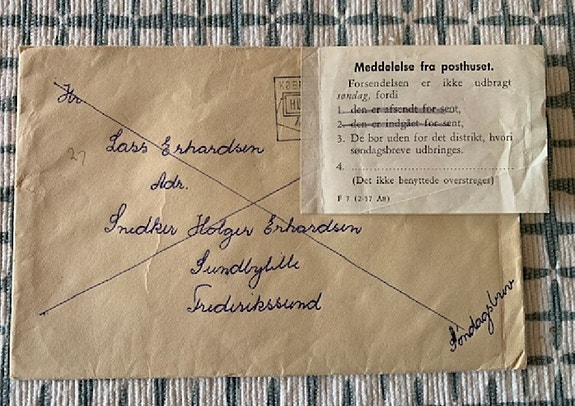 Meddelelse fra posthuset.
Forsendelsen er ikke udbragt
søndag, fordi
1. den er afsendt for sent,
2. den er indgået for sent,
3. De bor uden for det distrikt, hvori
søndagsbreve udbringes.
4. ........................................
(Det ikke benyttede overstreges)
F 7 (2-57 A8)
KØB
Hr
Lars Erhardsen
Adr.
Snedker Holger Erhardsen
Sundbylille
Frederikssund
Søndagsbrev
27